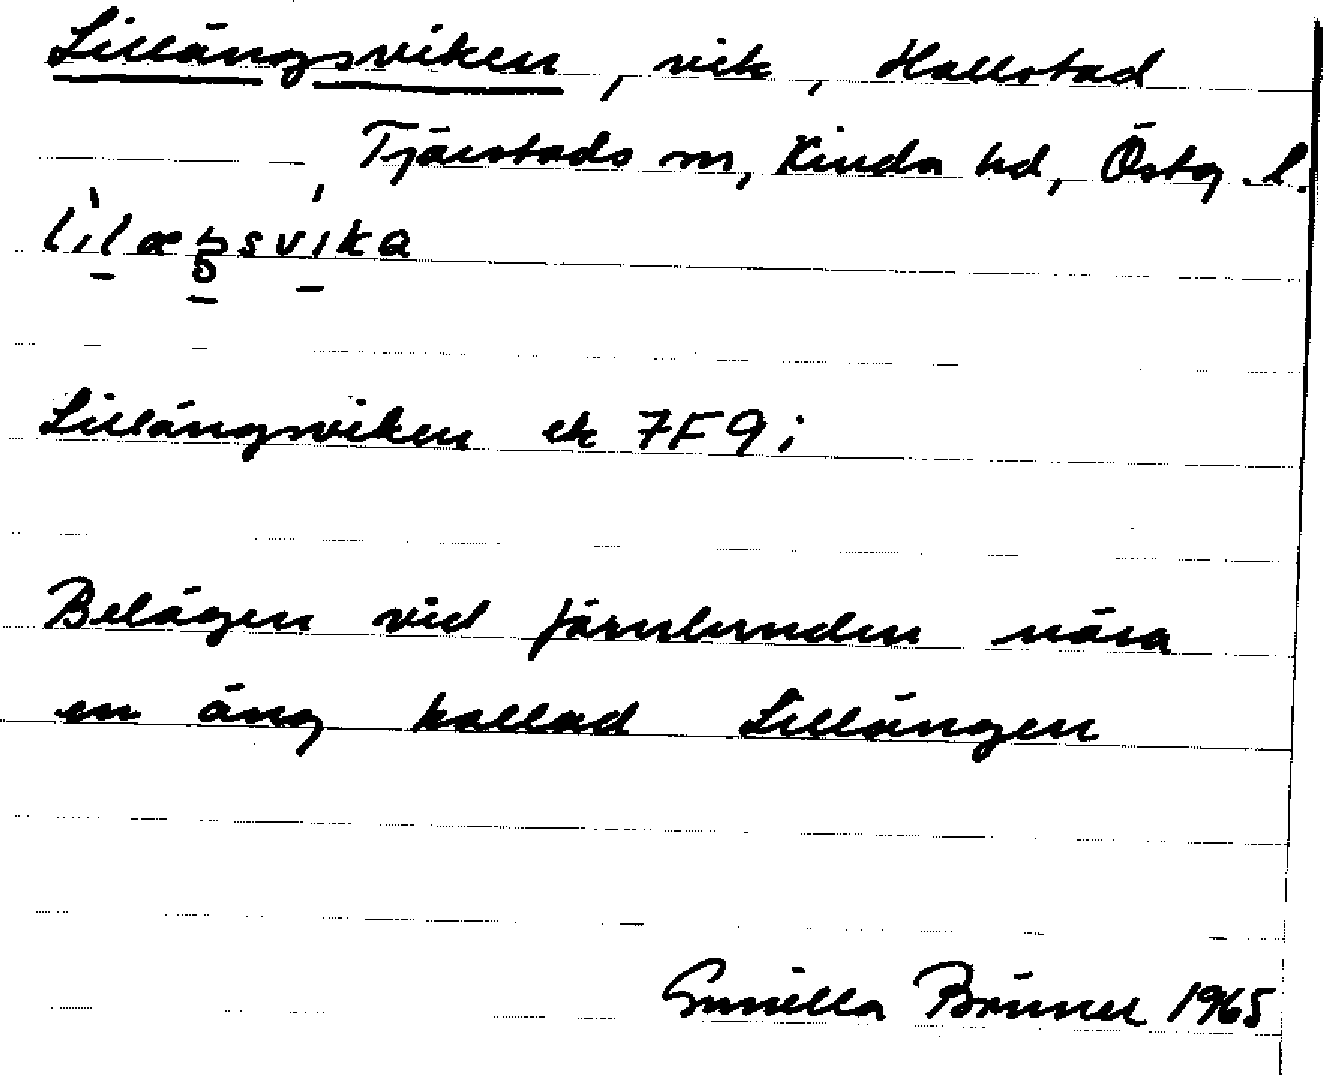 Lillängsviken, vik, Hallstad
Tjärstads sn, Kinda hd, Östg. l.
Lillängsviken ek 7F9i
Belägen vid Järnlunden nära
en äng kallad Lillängen
Gunilla Brüner 1965